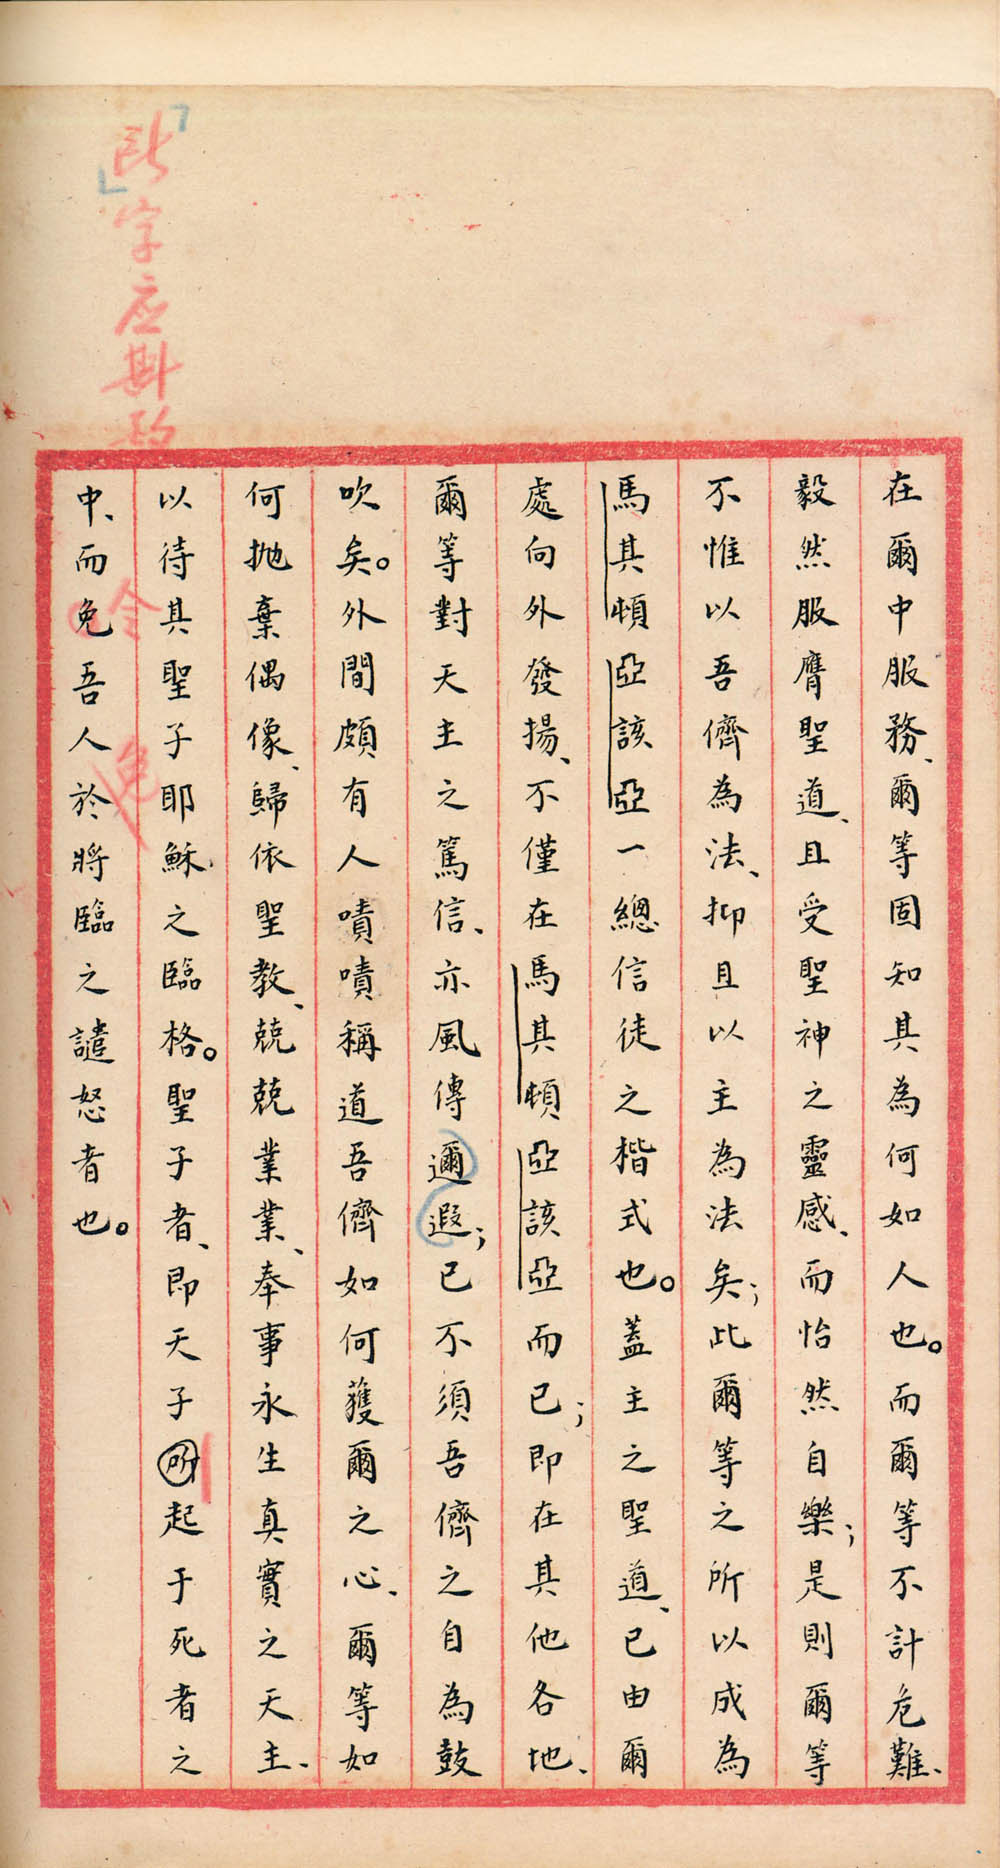 在爾中服務、爾等固知其為何如人也。而爾等不計危難、
毅然服膺聖道、且受聖神之靈感、而怡然自樂；是則爾等
不惟以吾儕為法、抑且以主為法矣；此爾等之所以成為
馬其頓亞該亞一總信徒之楷式也。蓋主之聖道、已由爾
處向外發揚、不僅在馬其頓亞該亞而已；即在其他各地、
爾等對天主之篤信、亦風傳邇遐；已不須吾儕之自為鼓
吹矣。外間頗有人嘖嘖稱道吾儕如何獲爾之心、爾等如
何抛棄偶像、歸依聖教、兢兢業業、奉事永生真實之天主、
以待其聖子耶穌之臨格。聖子者、即天子所起于死者之
中、而免吾人於將臨之譴怒者也。
令
免
「此」字应斟酌